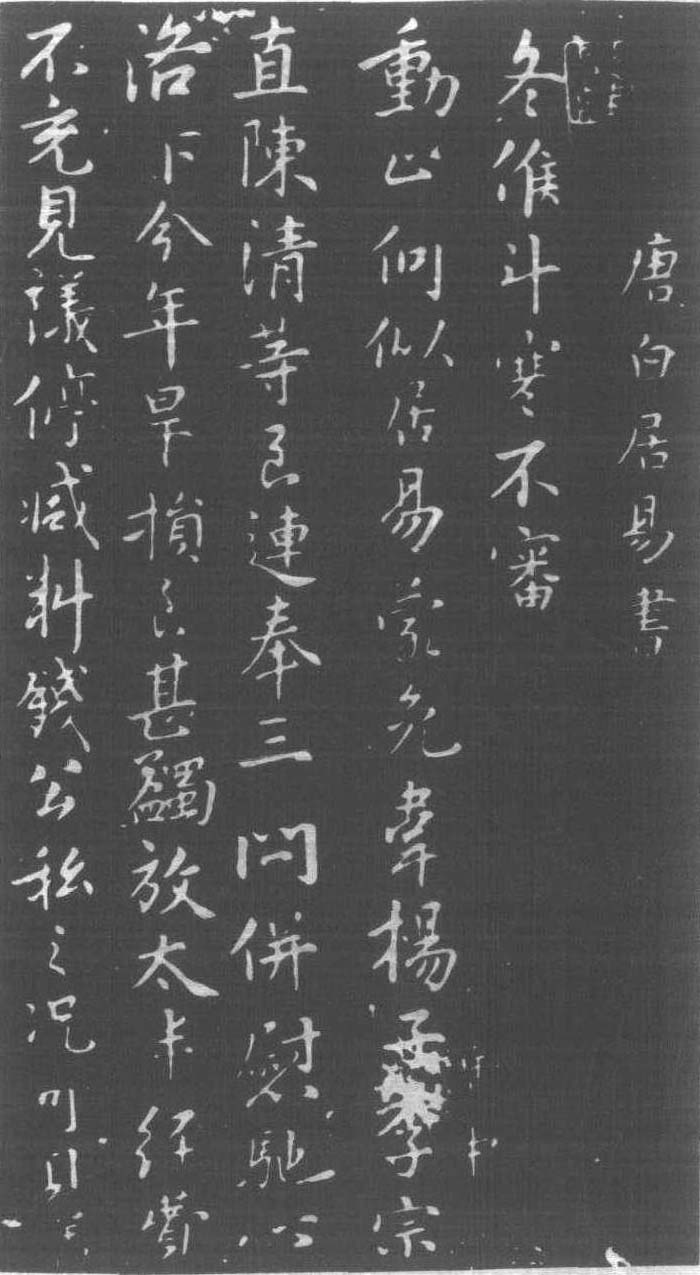 唐白居易書
冬候斗寒不審
動止何似居易蒙免韋楊子李宗
直陳清等至連奉三問併慰馳心
洛下今年旱損至甚蠲放太半經費
不充見議停減料錢公私之况可見